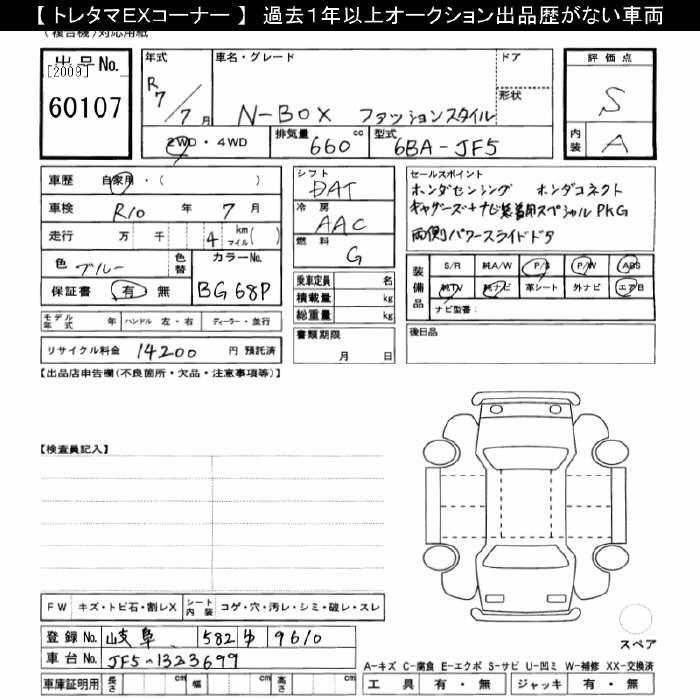 【 トレタマEXコーナー 】 過去1年以上オークション出品歴がない車両
(複合機)対応用紙
出品No.
[2009]
60107
年式
R7/7月
車名・グレード
N-BOX ファッションスタイル
ドア
形状
2WD・4WD
排気量 660 cc
型式 6BA-JF5
評価点
S
内装 A
車歴 自家用・( )
車検 R10 年 7 月
走行 万 千 4 km マイル( )
色 ブルー 色替
カラーNo. BG68P
保証書 有 無
シフト
DAT
冷房
AAC
燃料
G
乗車定員 名
積載量 kg
総重量 kg
書類期限
月 日
セールスポイント
ホンダセンシング ホンダコネクト
ギャザーズ+ナビ装着用スペシャルPKG
両側パワースライドドア
装備品
S/R 純A/W P/S P/W ABS
純TV 純ナビ 革シート 外ナビ エアB
ナビ型番:
モデル年式 年 ハンドル 左・右 ディーラー・並行
リサイクル料金 14200 円 預託済
後日品
【出品店申告欄(不良箇所・欠品・注意事項等)】
【検査員記入】
FW キズ・トビ石・割レX シート内装 コゲ・穴・汚レ・シミ・破レ・スレ
登録No. 岐阜 582 ゆ 9610
車台No. JF5-1323699
車庫証明用 長さ cm 幅 cm 高さ cm
スペア
A-キズ C-腐食 E-エクボ S-サビ U-凹ミ W-補修 XX-交換済
工具 有・無 ジャッキ 有・無